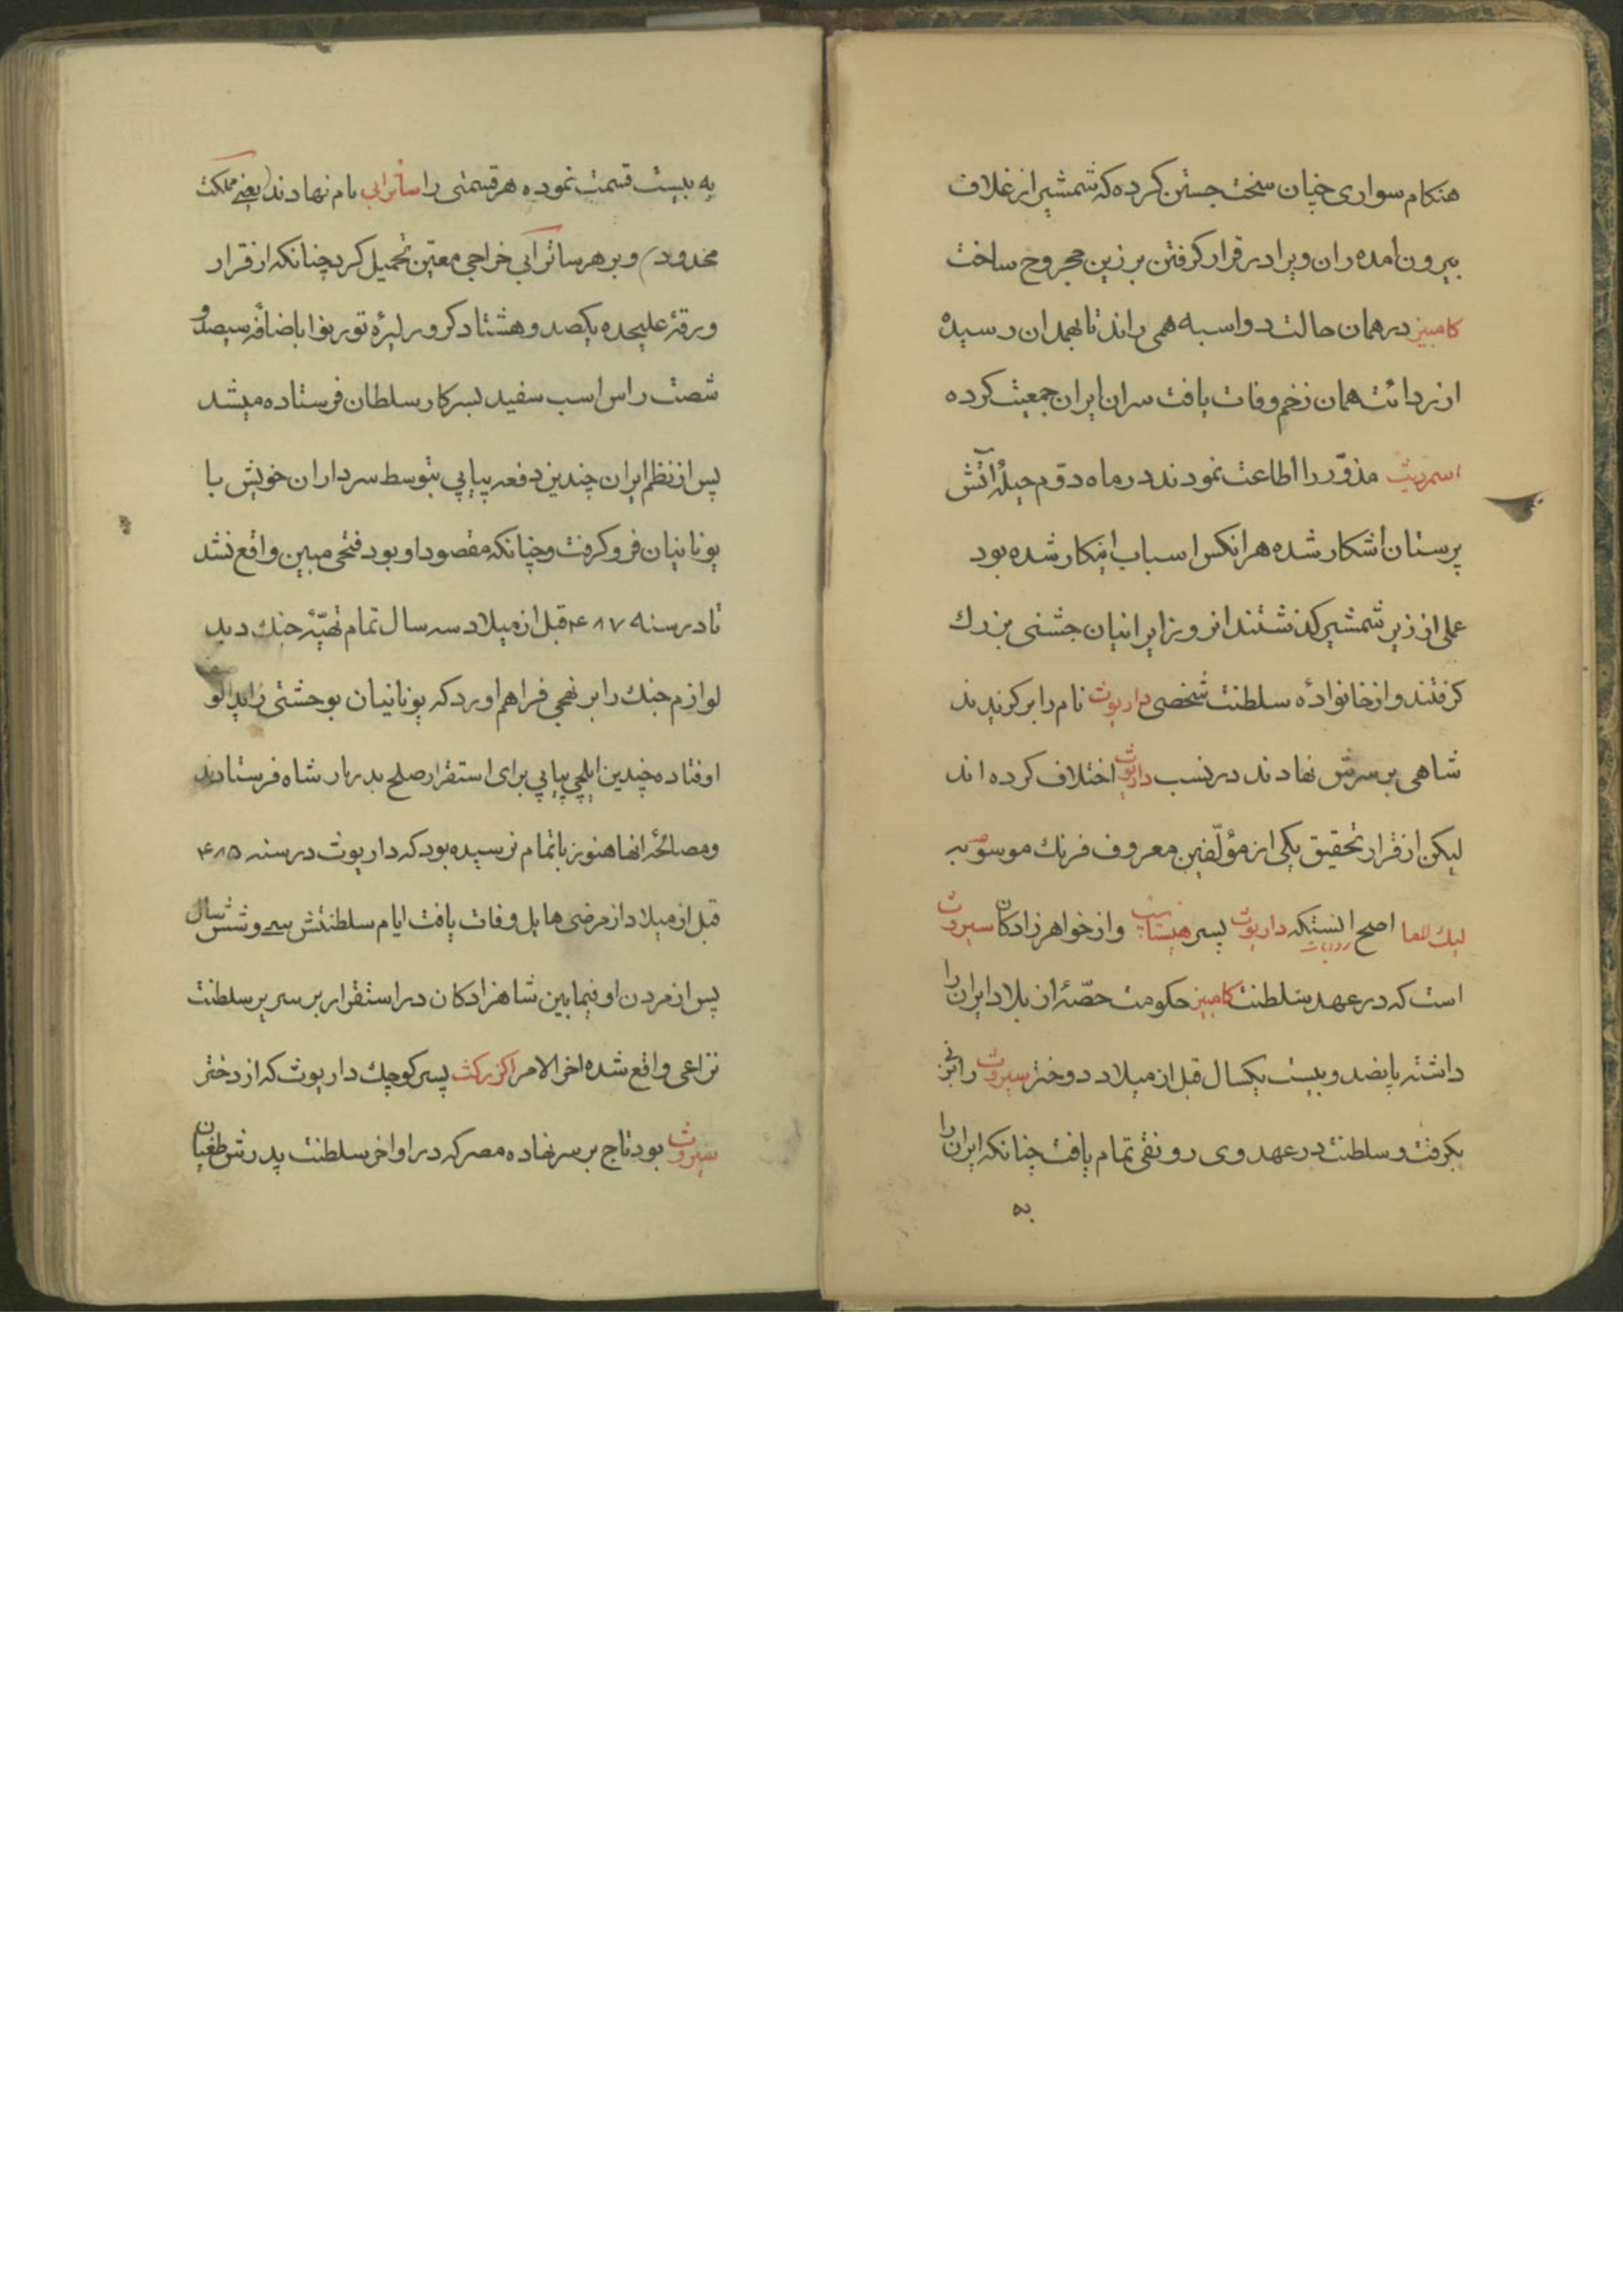 هنکام سواری چنان سخت جستن کرده که شمشیر از غلاف
بیرون آمده ران ویرا در قرار کرفتن بر زین مجروح ساخت
کامبیز در همان حالت دواسبه همی راند تا بهمدان رسیده
از ردائت همان زخم وفات یافت سران ایران جمعیت کرده
اسمردیث مذوّر را اطاعت نمودند در ماه دوّم حیلهٔ آتش
پرستان آشکار شده هر آنکس اسباب اینکار شده بود
علی از زیر شمشیر کذشتند انروز ایرانیان جشنی بزرك
کرفتند و از خانوادهٔ سلطنت شخصی داریوث نام را برکزیدند
شاهی بر سرش نهادند در نسب داریوث اختلاف کرده اند
لیکن از قرار تحقیق یکی از مؤلّفین معروف فرنك موسوم به
اصح روایات انستکه داریوث پسر هیستاسپ و از خواهرزادکان سیروث
است که در عهد سلطنت کامبیز حکومت حصّهٔ از بلاد ایران را
داشته پانصد و بیست یکسال قبل از میلاد دو دختر سیروث را بزنی
بکرفت و سلطنت در عهد وی رونقی تمام یافت چنانکه ایران را
به
به بیست قسمت نموده هر قسمتی را ساتراپی نام نهادند (یعنی مملکت
محدود) و بر هر ساتراپی خراجی معیّن تحمیل کرد چنانکه از قرار
ورقهٔ علیحده یکصد و هشتاد کرور لیرهٔ تورنوا باضافهٔ سیصد و
شصت راس اسب سفید بسرکار سلطان فرستاده میشد
پس از نظم ایران چندین دفعه پیاپی بتوسط سرداران خویش با
یونانیان فرو کرفت و چنانکه مقصود او بود فتحی مبین واقع نشد
تا در سنه ۴۸۷ قبل از میلاد سه سال تمام تهیّهٔ جنك دید
لوازم جنك را بر نهجی فراهم اورد که یونانیان بوحشتی زایدالو
اوفتاده چندین ایلچی پیاپی برای استقرار صلح بدربار شاه فرستادند
و مصالحهٔ انها هنوز باتمام نرسیده بود که داریوث در سنه ۴۸۵
قبل از میلاد از مرضی هایل وفات یافت ایام سلطنتش سی و شش سال
پس از مردن او فیمابین شاهزادکان در استقرار بر سریر سلطنت
نزاعی واقع شده اخرالامر اکزرکث پسر کوچك داریوث که از دختر
سیروث بود تاج بر سر نهاده مصر که در اواخر سلطنت پدرش طغیان